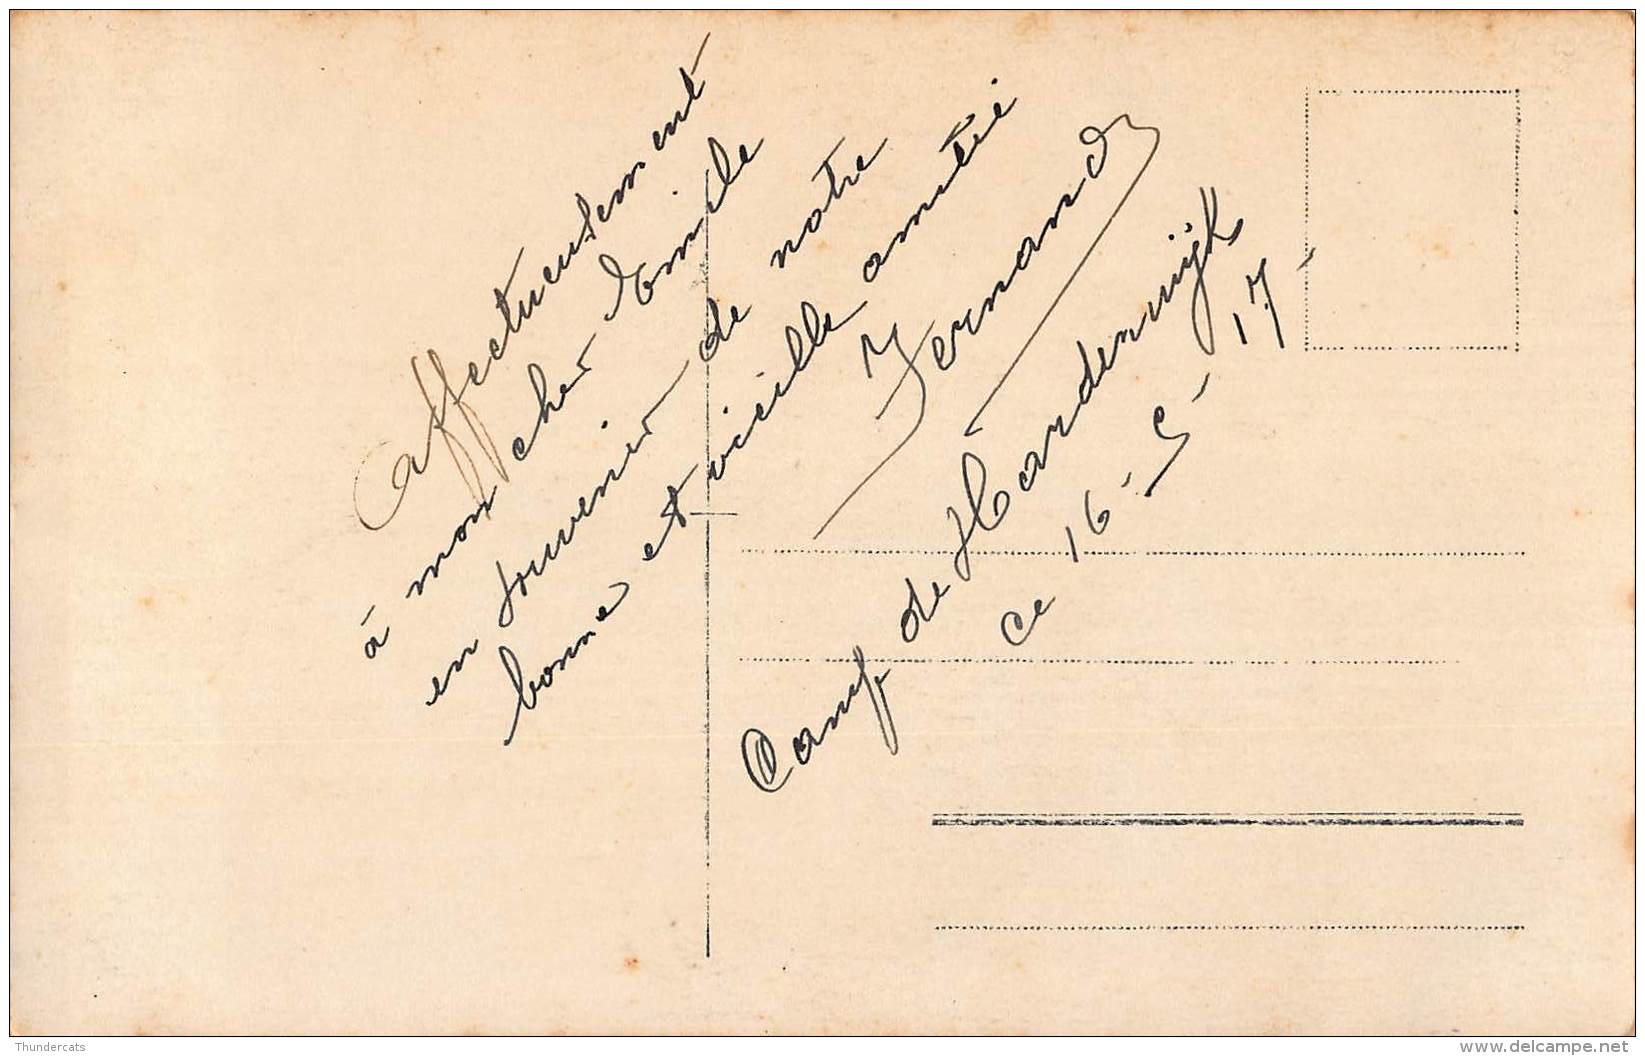 Affectueusement
à mon cher Emile
en souvenir de notre
bonne et vieille amitié
Fernand
Camp de Harderwijk
ce 16-5-17-
Thundercats
www.delcampe.net